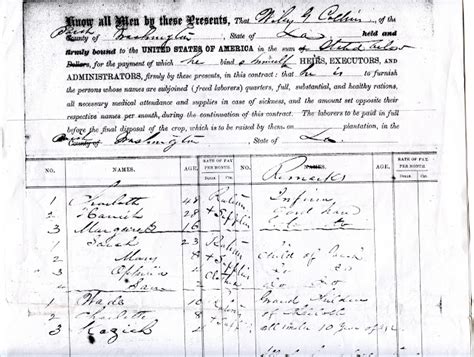 Know all Men by these Presents, That Wiley G. Collins of the
Parish
County of Washington State of La held and
firmly bound to the UNITED STATES OF AMERICA in the sum of Stated below
Dollars, for the payment of which he bind s himself HEIRS, EXECUTORS, AND
ADMINISTRATORS, firmly by these presents, in this contract: that he is to furnish
the persons whose names are subjoined (freed laborers) quarters, fuel, substantial, and healthy rations,
all necessary medical attendance and supplies in case of sickness, and the amount set opposite their
respective names per month, during the continuation of this contract. The laborers to be paid in full
before the final disposal of the crop, which is to be raised by them on plantation, in the
Parish
County of Washington State of La.
No. NAMES. AGE. RATE OF PAY PER MONTH. No. NAMES. Remarks AGE. RATE OF PAY PER MONTH.
1 Charlotte 48 Ration Infirm
2 Harriet 28 + Supplies Good hand
3 Margaret 16
1 Sarah 23 Ration
2 Mary 8 + Child of Sarah
3 Ophelia
4
1 Wade 10 Grand Children
2 Charlotte 8 of
3 all under 10 years of age